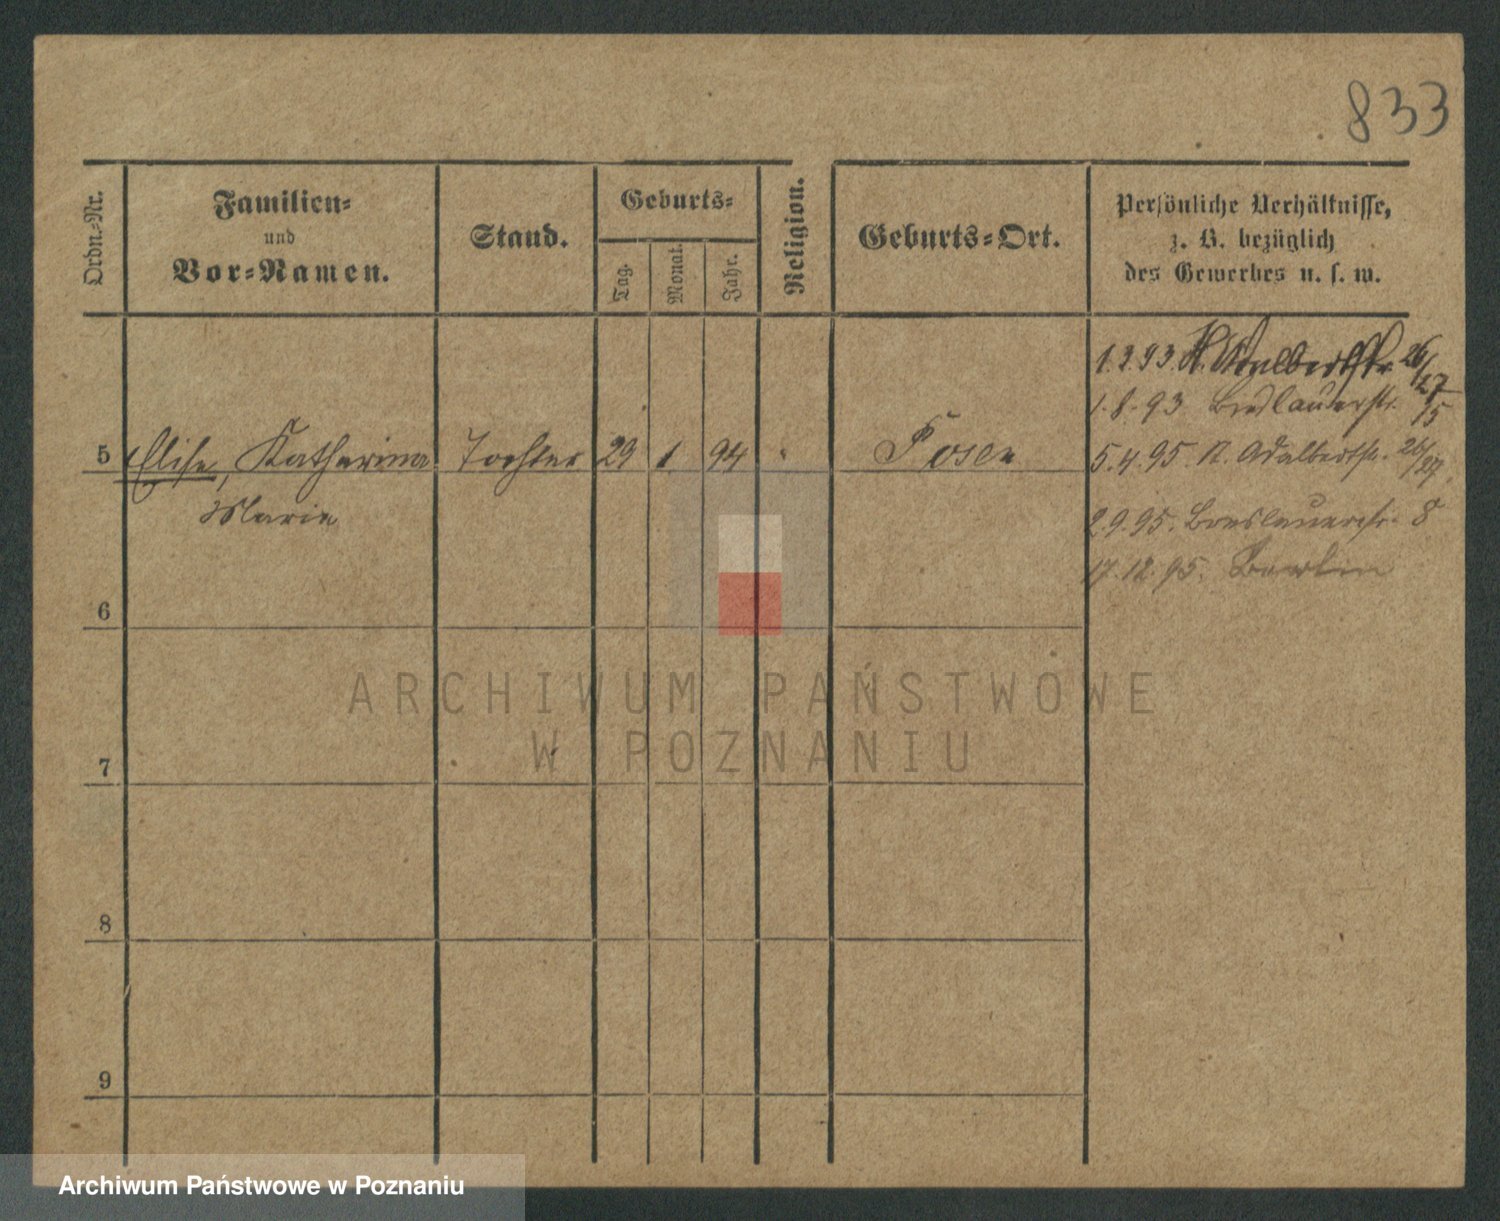 833
Ordn.-Nr.
Familien-
und
Vor-Namen.
Stand.
Geburts-
Tag.
Monat.
Jahr.
Religion.
Geburts-Ort.
Persönliche Verhältnisse,
z. B. bezüglich
des Gewerbes u. s. w.
1.3.93. St. Adalbertstr. 26/27
1.8.93 Breslauerstr. 15
5 Elise, Katharina Tochter 29 1. 94 Posen
5.4.95. St. Adalbertstr. 26/27.
Marie
2.9.95. Breslauerstr. 8
17.12.95. Berlin
6
7
8
9
ARCHIWUM PAŃSTWOWE
W POZNANIU
Archiwum Państwowe w Poznaniu